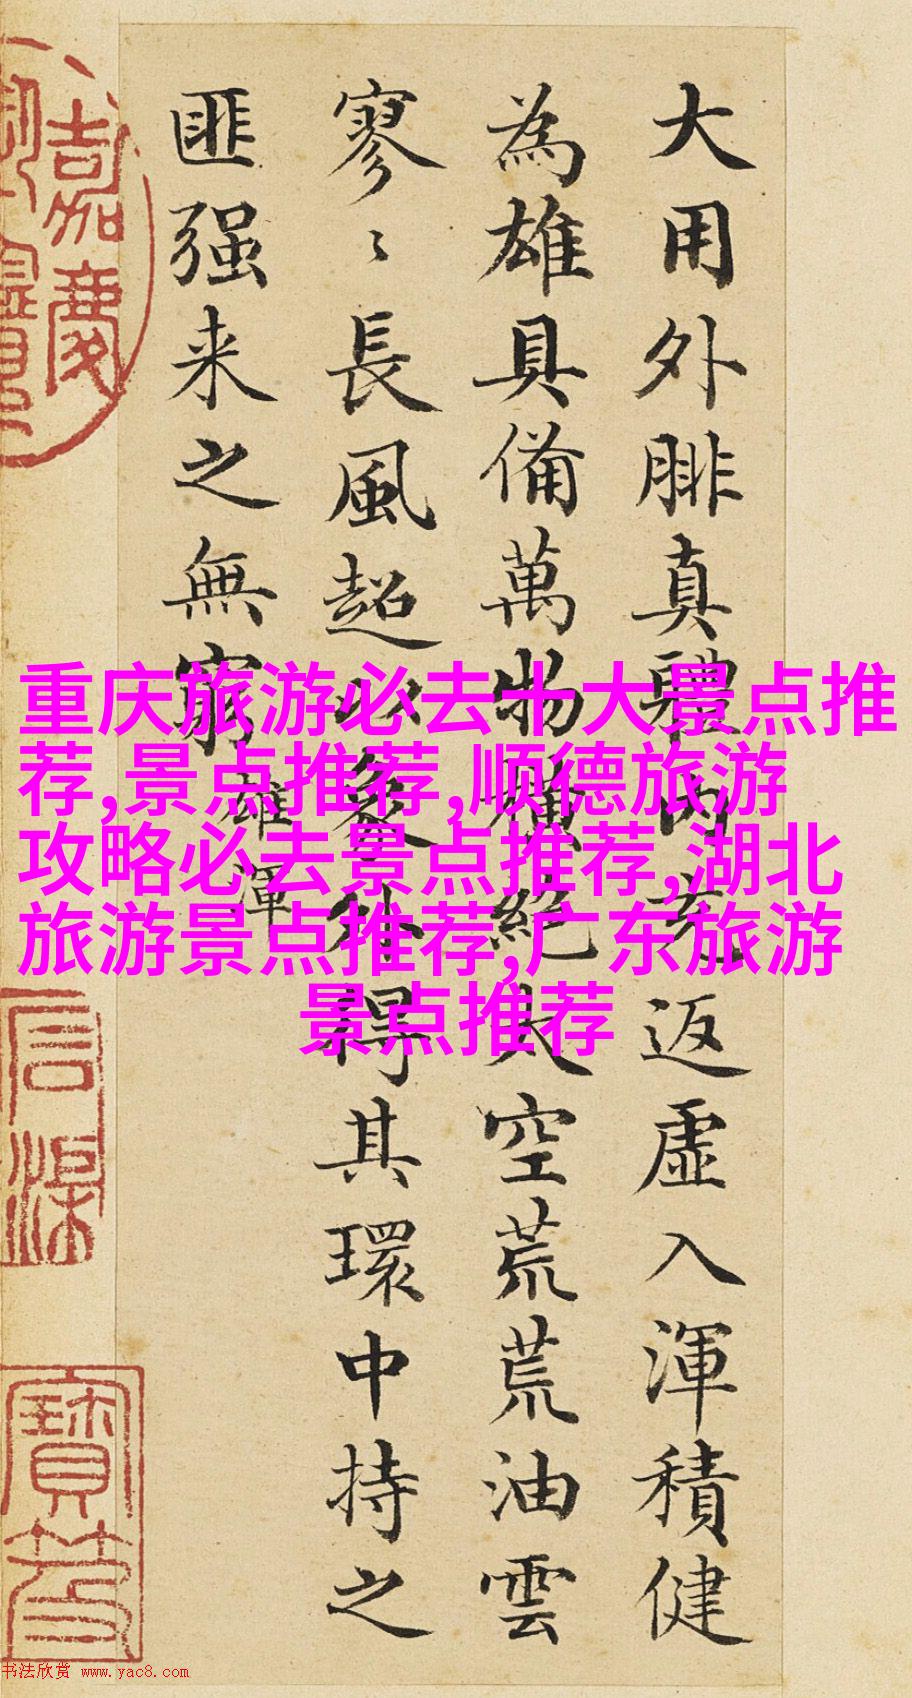 大用外腓真體内充返虛入渾積健
為雄具備萬物橫絕太空荒荒油雲
寥〻長風超以象外得其環中持之
匪强来之無窮
雄渾
重庆旅游必去十大景点推
荐,景点推荐,顺德旅游
攻略必去景点推荐,湖北
旅游景点推荐,广东旅游
景点推荐
嘉慶
书法欣赏 www.yac8.com